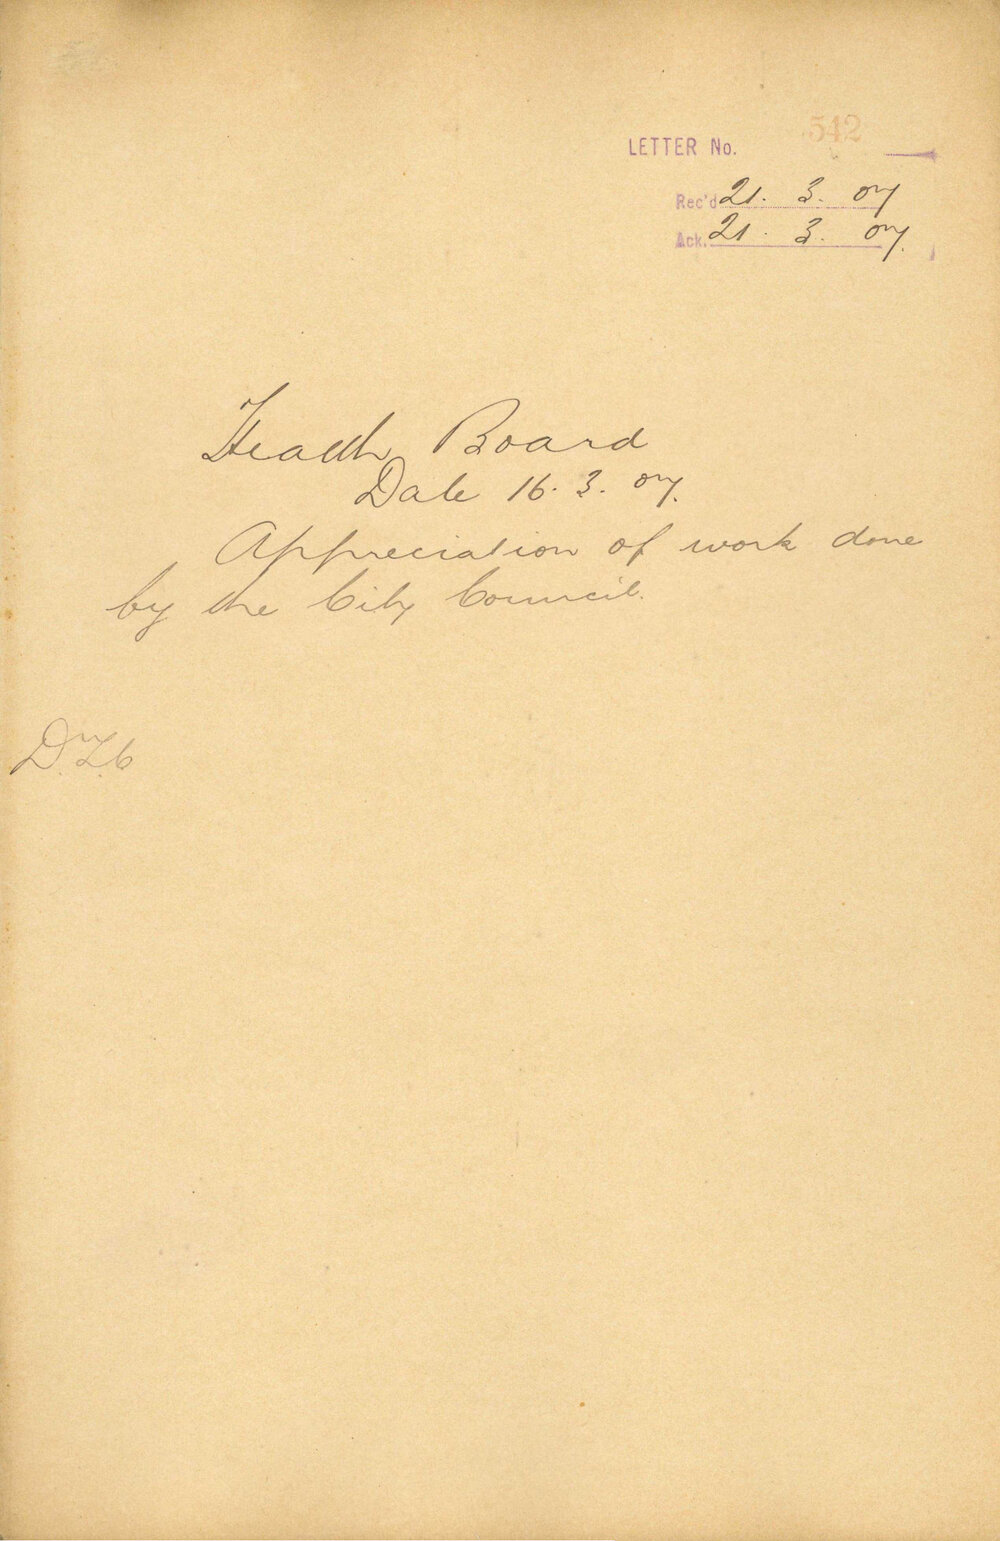 LETTER No. 542
Rec'd 21. 3. 07
Ack. 21. 3. 07.
Health Board
Date 16. 3. 07.
Appreciation of work done
by the City Council.